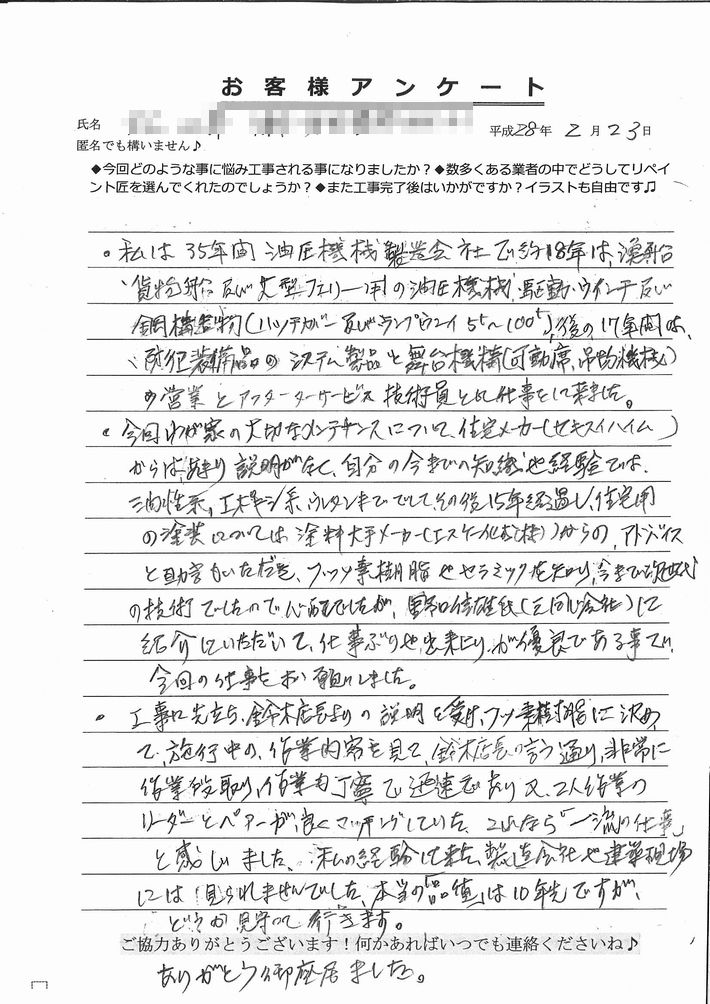 お客様アンケート
氏名
平成28年2月23日
匿名でも構いません♪
◆今回どのような事に悩み工事される事になりましたか？◆数多くある業者の中でどうしてリペイ
ント匠を選んでくれたのでしょうか？◆また工事完了後はいかがですか？イラストも自由です♫
。私は35年間油圧機械製造会社で約18年は、漁船
貨物船及び大型フェリー用の油圧機械、駆動ウインチ及び
鋼構造物(ハッチカバー及びランプウェイ5t～100t)、後の17年間は、
防犯装備品のシステム製品と舞台機構(可動席、吊物機械)
の営業とアフターサービス技術員として仕事をして来ました。
。今回わが家の大切なメンテナンスについて、住宅メーカー(セキスイハイム)
からはあまり説明がなく、自分の今までの知識や経験では、
油性系、エポキシ系、ウレタンまででして、その後15年経過し、住宅用
の塗装については塗料大手メーカー(エスケー化研(株))からの、アドバイス
と助言をいただき、フッソ素樹脂やセラミックを知り、今まで次世代
の技術でしたので心配でしたが、(会社)に
紹介していただいて、仕事ぶりや出来上りが優良である事で、
今回の仕事をお願いしました。
。工事に先立ち、鈴木店長よりの説明を受け、フッソ素樹脂に決め
て、施行中の、作業内容を見て、鈴木店長の言う通り、非常に
作業段取り、作業も丁寧で迅速であり又、2人作業の
リーダーとペアーが、良くマッチングしていた、これなら「一流の仕事」
と感じました、私の経験して来た、製造会社や建築現場
には見られませんでした、本当の「品値」は10年先ですが、
どうか見守って行きます。
ご協力ありがとうございます！何かあればいつでも連絡くださいね♪
ありがとう御座居ました。